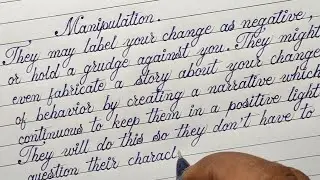 Manipulation.
They may label your change as negative,
or hold a grudge against you. They might
even fabricate a story about your change
of behavior by creating a narrative which
continuous to keep them in a positive light
They will do this so they don't have to
question their charac